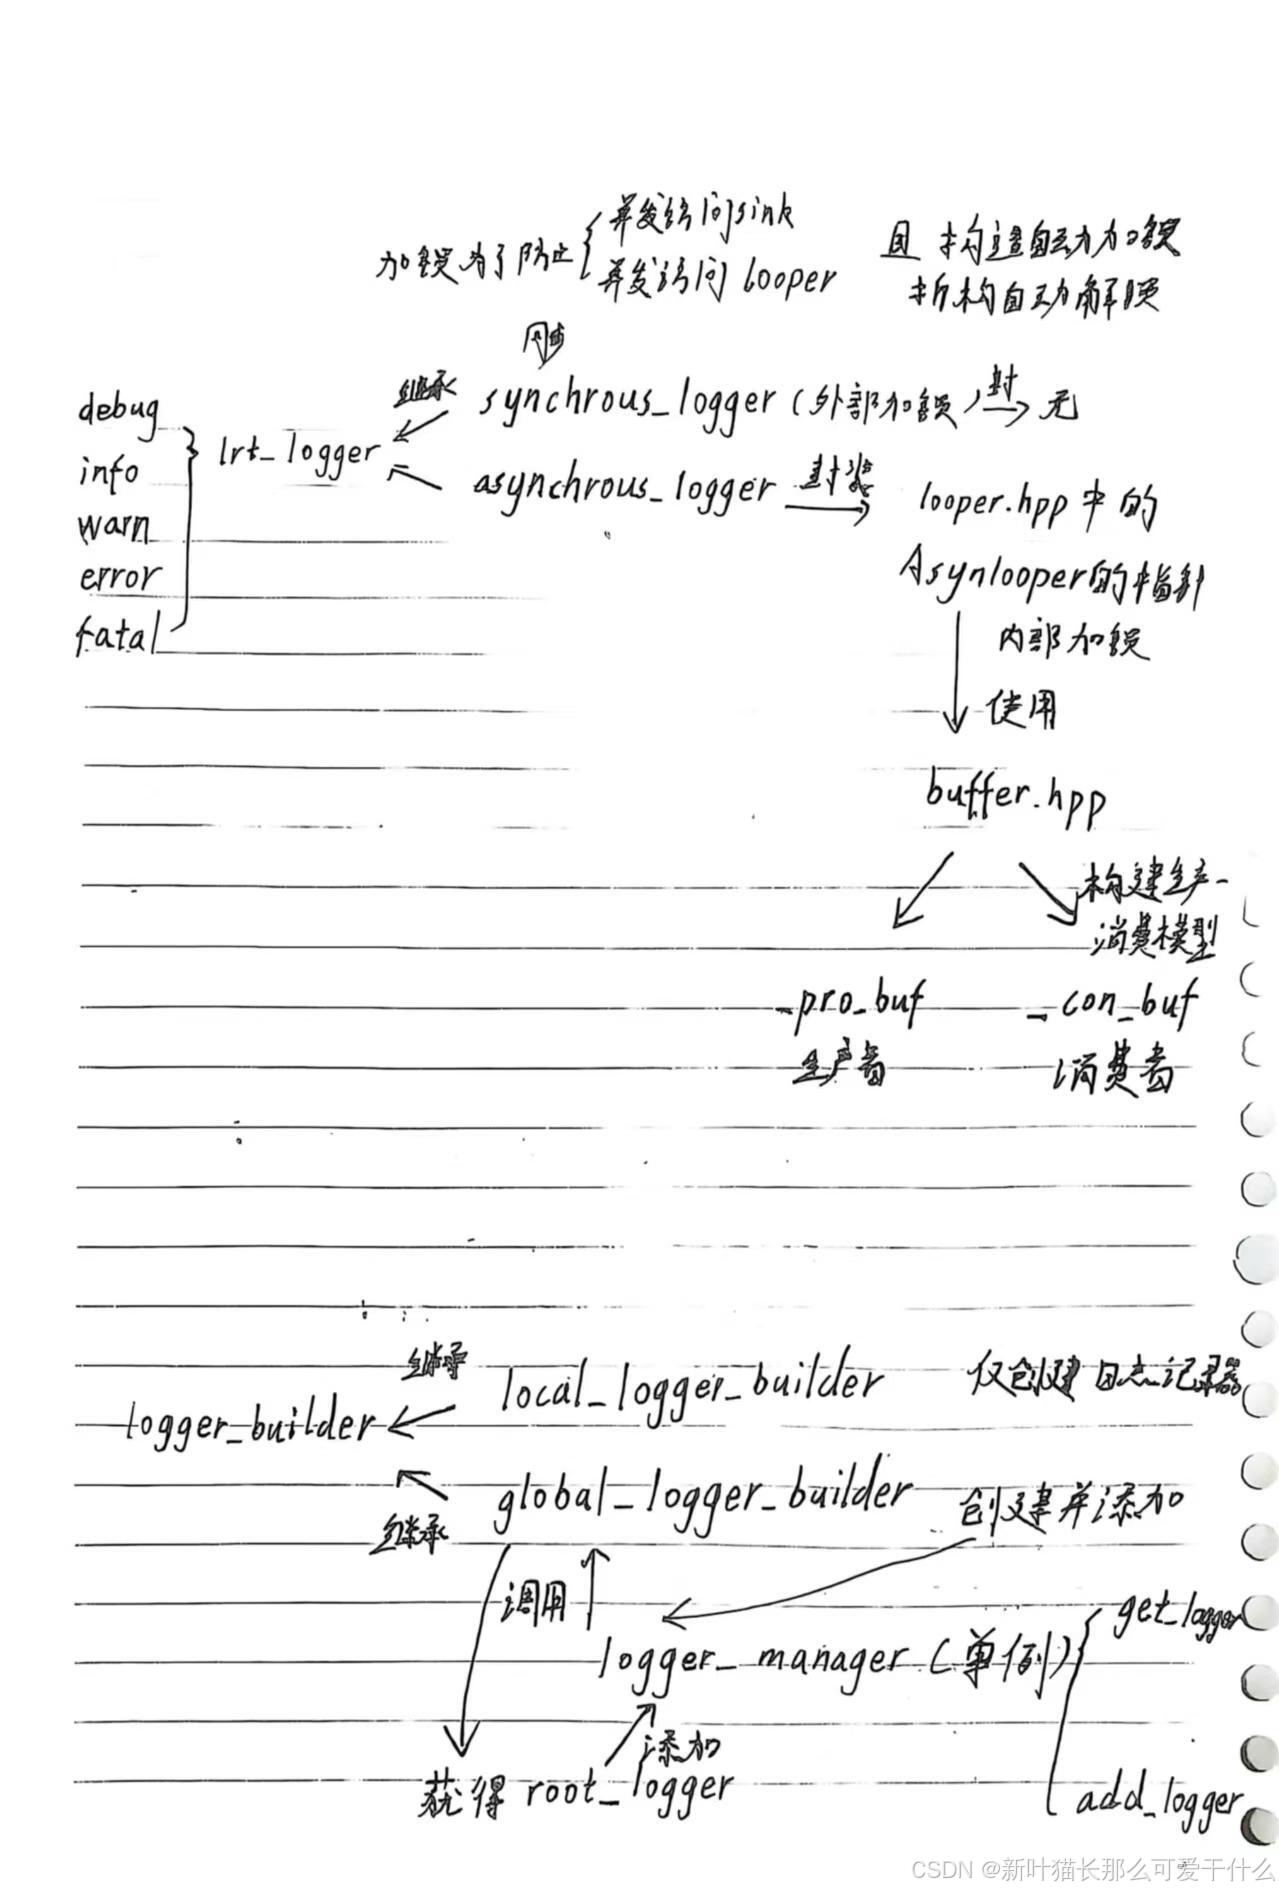 并发访问sink
加锁为了防止
并发访问 looper
且 构造自动加锁
析构自动解锁
同步
继承
synchrous_logger (外部加锁)
封
无
debug
info
warn
error
fatal
lrt_logger
asynchrous_logger
封装
looper.hpp中的
Asynlooper的指针
内部加锁
使用
buffer.hpp
构建生产-
消费模型
_pro_buf
生产者
_con_buf
消费者
继承
local_logger_builder
仅创建日志记录器
logger_builder
global_logger_builder
创建并添加
继承
调用
get_logger
logger_manager (单例)
添加
获得 root_logger
add_logger
CSDN @新叶猫长那么可爱干什么